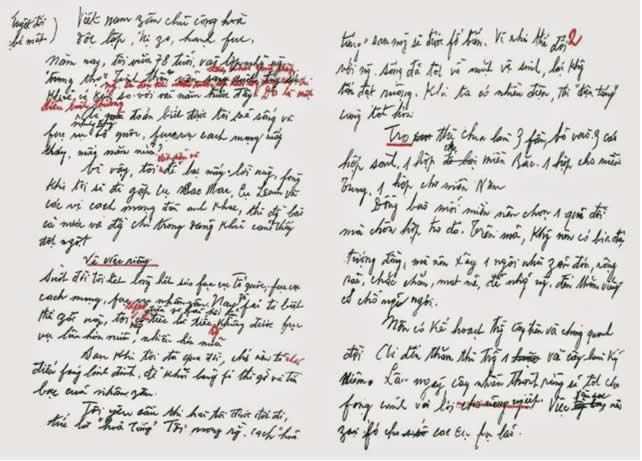 Tuyệt đối
bí mật)
Việt nam zân chủ cộng hoà
độc lập, tự zo, hạnh fúc
Năm nay, tôi vừa 78 tuổi, vào lớp những người
trung thọ
Khoẻ có kém so với vài năm trước đây. Đó là một
điều bình thường
Nhưng ai mà đoán biết được tôi còn sống và
fục vụ tổ quốc, fục vụ cách mạng mấy
tháng, mấy năm nữa?
Vì vậy, tôi để sẵn mấy lời này, fòng
khi tôi sẽ đi gặp cụ Các Mác, cụ Lênin và
các vị cách mạng đàn anh khác, thì đồng bào
cả nước và đồng chí trong đảng khỏi cảm thấy
đột ngột
Về việc riêng
Suốt đời tôi hết lòng hết sức fục vụ tổ quốc, fục vụ
cách mạng, fục vụ nhân zân. Nay zù fải từ biệt
thế giới này, tôi không có điều gì fải hối hận, chỉ tiếc là tiếc không được fục
vụ lâu hơn nữa, nhiều hơn nữa
Sau khi tôi đã qua đời, chớ nên tổ chức
điếu fúng linh đình, để khỏi lãng fí thì giờ và tiền
bạc của nhân zân.
Tôi yêu cầu thi hài tôi được đốt đi,
tức là "hoả táng". Tôi mong rằng cách "hoả
2
táng" sau này sẽ được fổ biến. Vì như thế đối
với người sống đã tốt về mặt vệ sinh, lại không
tốn đất ruộng. Khi ta có nhiều điện, thì "điện táng"
càng tốt hơn
Tro thì chia làm 3 fần, bỏ vào 3 cái
hộp sành, 1 hộp cho miền Bắc. 1 hộp cho miền
Trung, 1 hộp cho miền Nam
Đồng bào mỗi miền nên chọn 1 quả đồi
mà chôn hộp tro đó. Trên mả, không nên có bia đá
tượng đồng, mà nên xây 1 ngôi nhà zản đơn, rộng
rãi, chắc chắn, mát mẻ, để những người đến thăm viếng
có chỗ nghỉ ngơi.
Nên có kế hoạch trồng cây trên và chung quanh
đồi. Ai đến thăm thì trồng 1 vài cây làm kỷ
niệm. Lâu ngày, cây nhiều thành rừng sẽ tốt cho
fong cảnh và lợi cho nông nghiệp. Việc săn sóc nên
zao fó cho các cụ fụ lão.